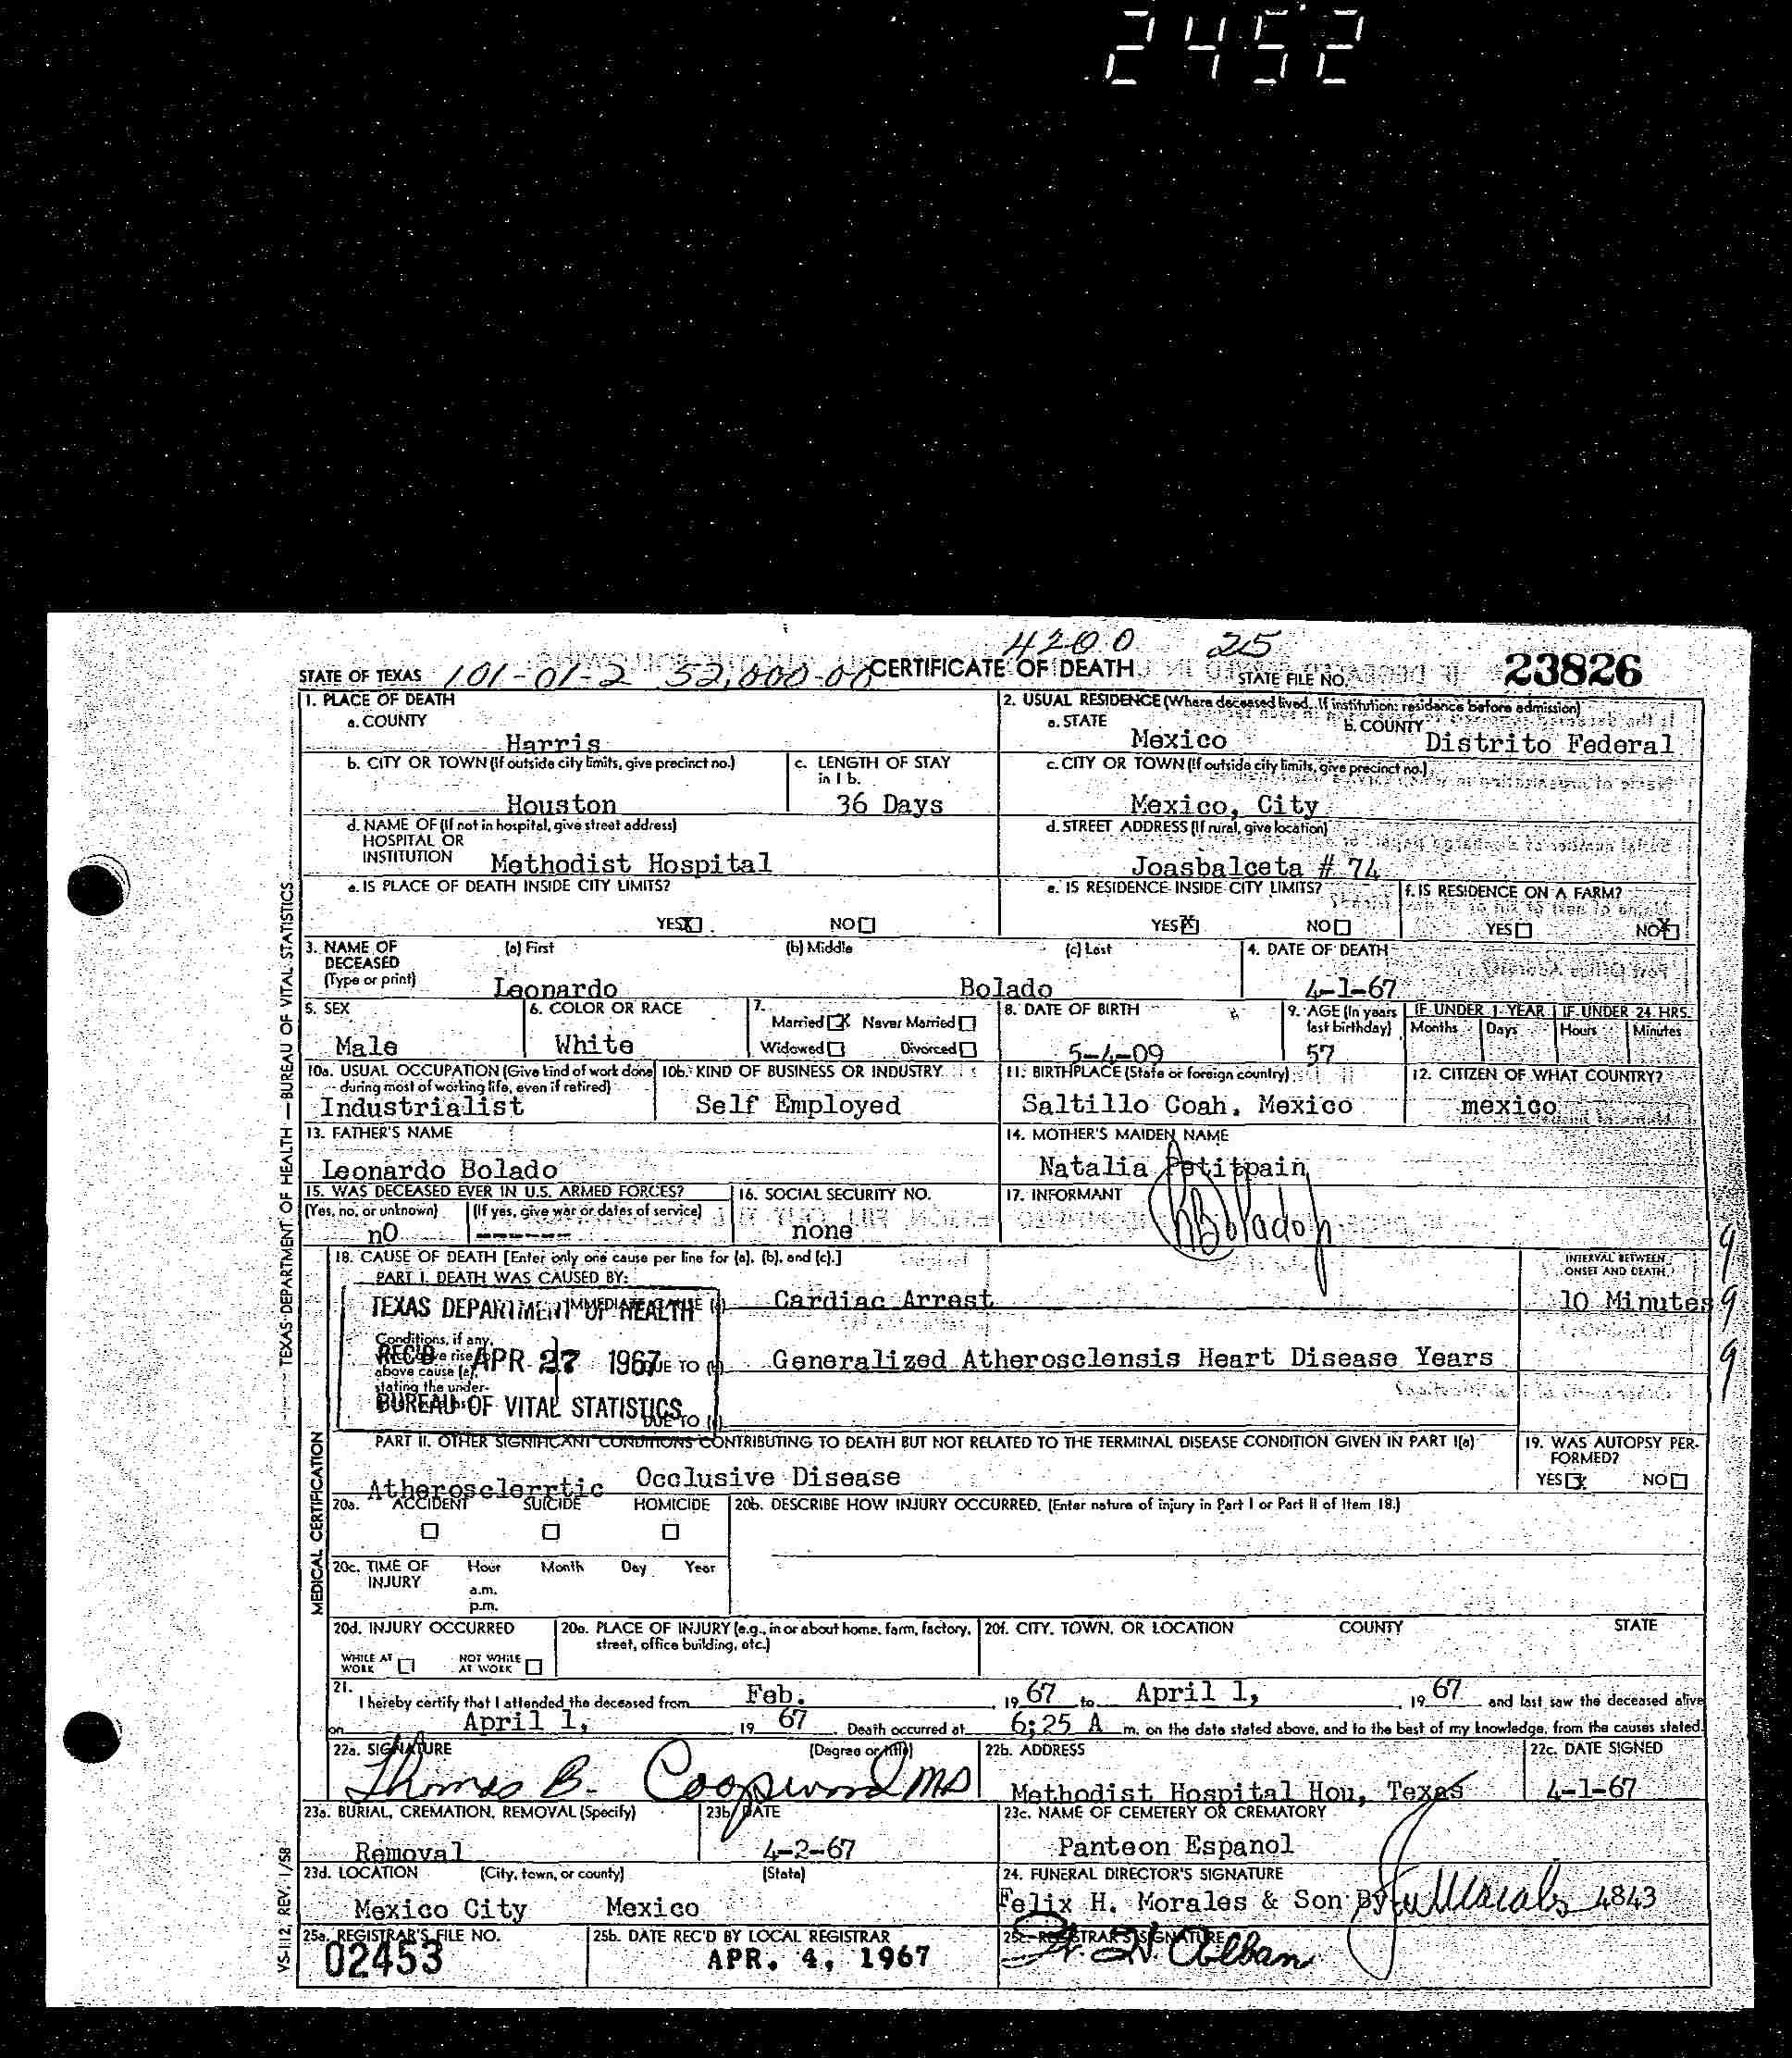 2452
4200 25
STATE OF TEXAS 101-01-2 52,000-00 CERTIFICATE OF DEATH STATE FILE NO. 23826
1. PLACE OF DEATH
a. COUNTY
Harris
2. USUAL RESIDENCE (Where deceased lived. If institution: residence before admission)
a. STATE b. COUNTY
Mexico Distrito Federal
b. CITY OR TOWN (If outside city limits, give precinct no.)
Houston
c. LENGTH OF STAY
in 1 b.
36 Days
c. CITY OR TOWN (If outside city limits, give precinct no.)
Mexico, City
d. NAME OF (If not in hospital, give street address)
HOSPITAL OR
INSTITUTION Methodist Hospital
d. STREET ADDRESS (If rural, give location)
Joasbalceta # 74
e. IS PLACE OF DEATH INSIDE CITY LIMITS?
YES X NO
e. IS RESIDENCE INSIDE CITY LIMITS?
YES X NO
f. IS RESIDENCE ON A FARM?
YES NO X
3. NAME OF
DECEASED
(Type or print)
(a) First (b) Middle (c) Last
Leonardo Bolado
4. DATE OF DEATH
4-1-67
5. SEX
Male
6. COLOR OR RACE
White
7.
Married X Never Married
Widowed Divorced
8. DATE OF BIRTH
5-4-09
9. AGE (In years
last birthday)
57
IF UNDER 1 YEAR IF UNDER 24 HRS.
Months Days Hours Minutes
10a. USUAL OCCUPATION (Give kind of work done
during most of working life, even if retired)
Industrialist
10b. KIND OF BUSINESS OR INDUSTRY
Self Employed
11. BIRTHPLACE (State or foreign country)
Saltillo Coah. Mexico
12. CITIZEN OF WHAT COUNTRY?
mexico
13. FATHER'S NAME
Leonardo Bolado
14. MOTHER'S MAIDEN NAME
Natalia Petitpain
15. WAS DECEASED EVER IN U.S. ARMED FORCES?
(Yes, no, or unknown) (If yes, give war or dates of service)
nO ------
16. SOCIAL SECURITY NO.
none
17. INFORMANT
18. CAUSE OF DEATH [Enter only one cause per line for (a), (b), and (c).]
PART I. DEATH WAS CAUSED BY:
INTERVAL BETWEEN
ONSET AND DEATH
9
IMMEDIATE CAUSE (a) Cardiac Arrest 10 Minutes 9
Conditions, if any,
which gave rise to
above cause (a),
stating the under-
DUE TO (b) Generalized Atherosclensis Heart Disease Years 9
DUE TO (c)
TEXAS DEPARTMENT OF HEALTH
REC'D APR 27 1967
BUREAU OF VITAL STATISTICS
PART II. OTHER SIGNIFICANT CONDITIONS CONTRIBUTING TO DEATH BUT NOT RELATED TO THE TERMINAL DISEASE CONDITION GIVEN IN PART I(a)
Atherosclerrtic Occlusive Disease
19. WAS AUTOPSY PER-
FORMED?
YES X NO
20a. ACCIDENT SUICIDE HOMICIDE
20b. DESCRIBE HOW INJURY OCCURRED. (Enter nature of injury in Part I or Part II of Item 18.)
20c. TIME OF
INJURY
Hour Month Day Year
a.m.
p.m.
20d. INJURY OCCURRED
WHILE AT
WORK
NOT WHILE
AT WORK
20e. PLACE OF INJURY (e.g., in or about home, farm, factory,
street, office building, etc.)
20f. CITY, TOWN, OR LOCATION COUNTY STATE
21.
I hereby certify that I attended the deceased from Feb. , 19 67 to April 1, , 19 67 and last saw the deceased alive
on April 1, 19 67. Death occurred at 6:25 A m. on the date stated above, and to the best of my knowledge, from the causes stated.
22a. SIGNATURE (Degree or title)
Thomas B. Coopwood MD
22b. ADDRESS
Methodist Hospital Hou, Texas
22c. DATE SIGNED
4-1-67
23a. BURIAL, CREMATION, REMOVAL (Specify)
Removal
23b. DATE
4-2-67
23c. NAME OF CEMETERY OR CREMATORY
Panteon Espanol
23d. LOCATION (City, town, or county) (State)
Mexico City Mexico
24. FUNERAL DIRECTOR'S SIGNATURE
Felix H. Morales & Son By Morales 4843
25a. REGISTRAR'S FILE NO.
02453
25b. DATE REC'D BY LOCAL REGISTRAR
APR. 4, 1967
25c. REGISTRAR'S SIGNATURE
TEXAS DEPARTMENT OF HEALTH — BUREAU OF VITAL STATISTICS
MEDICAL CERTIFICATION
VS-112, REV. 1/58